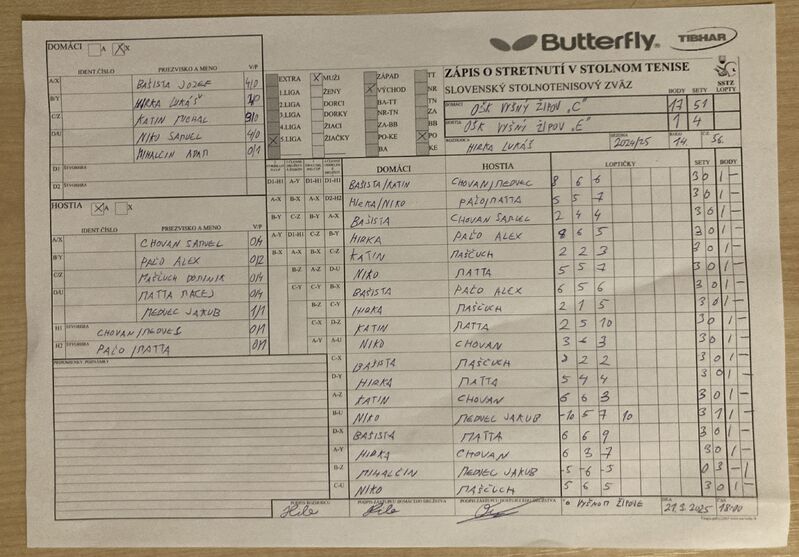 Butterfly TIBHAR
ZÁPIS O STRETNUTÍ V STOLNOM TENISE
SLOVENSKÝ STOLNOTENISOVÝ ZVÄZ
SSTZ LOPTY
BODY SETY
DOMÁCI OŠK VYŠNÝ ŽIPOV "C" 17 51
HOSTIA OŠK VYŠNÝ ŽIPOV "E" 1 4
HIRKA LUKÁŠ 2024/25 14. 56.
DOMÁCI A X
IDENT.ČÍSLO PRIEZVISKO A MENO V/P
A/X BAŠISTA JOZEF 4/0
B/Y HIRKA LUKÁŠ
C/Z KATIN MICHAL
D/U NIKO SAMUEL 4/0
MIHALČIN ADAM 0/1
D1 ŠTVORHRA
D2 ŠTVORHRA
HOSTIA A X
IDENT.ČÍSLO PRIEZVISKO A MENO V/P
A/X CHOVAN SAMUEL 0/4
B/Y PAĽO ALEX 0/2
C/Z MAŠČUCH DOMINIK 0/4
D/U MATTA MACEJ 0/4
MEDVEC JAKUB 1/1
H1 ŠTVORHRA CHOVAN/MEDVEC 0/1
H2 ŠTVORHRA PAĽO/MATTA 0/1
PRIPOMIENKY, POZNÁMKY
EXTRA MUŽI ZÁPAD TT
1.LIGA ŽENY VÝCHOD NR
2.LIGA DORCI BA-TT TN
3.LIGA DORKY NR-TN ZA
4.LIGA ŽIACI ZA-BB BB
5.LIGA ŽIAČKY PO-KE PO
BA KE
DOMÁCI HOSTIA LOPTIČKY SETY BODY
D1-H1 A-Y D1-H1 D1-H1 BAŠISTA/KATIN CHOVAN/MEDVEC 8 6 6 3 0 1 -
A-X B-X A-X D2-H2 HIRKA/NIKO PAĽO/MATTA 5 5 7 3 0 1 -
B-Y C-Z B-Y A-X BAŠISTA CHOVAN SAMUEL 2 4 4 3 0 1 -
A-Y D1-H1 C-Z B-Y HIRKA PAĽO ALEX 8 6 5 3 0 1 -
B-X A-X B-X C-Z KATIN MAŠČUCH 2 2 3 3 0 1 -
B-Z A-Z D-U NIKO MATTA 5 5 7 3 0 1 -
C-Y C-Y B-X BAŠISTA PAĽO ALEX 6 5 6 3 0 1 -
B-Z C-Y HIRKA MAŠČUCH 2 1 5 3 0 1 -
C-X D-Z KATIN MATTA 2 5 10 3 0 1 -
A-Y A-U NIKO CHOVAN 3 6 3 3 0 1 -
C-X BAŠISTA MAŠČUCH 2 2 3 0 1 -
D-Y HIRKA MATTA 5 4 4 3 0 1 -
A-Z KATIN CHOVAN 6 6 3 3 0 1 -
B-U NIKO MEDVEC JAKUB -10 5 7 10 3 1 1 -
D-X BAŠISTA MATTA 6 6 9 3 0 1 -
A-Y HIRKA CHOVAN 6 3 7 3 0 1 -
B-Z MIHALČIN MEDVEC JAKUB -5 -6 -5 0 3 - 1
C-U NIKO MAŠČUCH 5 6 5 3 0 1 -
PODPIS ROZHODCU PODPIS ZÁSTUPCU DOMÁCEHO DRUŽSTVA PODPIS ZÁSTUPCU HOSŤUJÚCEHO DRUŽSTVA VYŠNOM ŽIPOVE DŇA 2025 ČAS 18:00